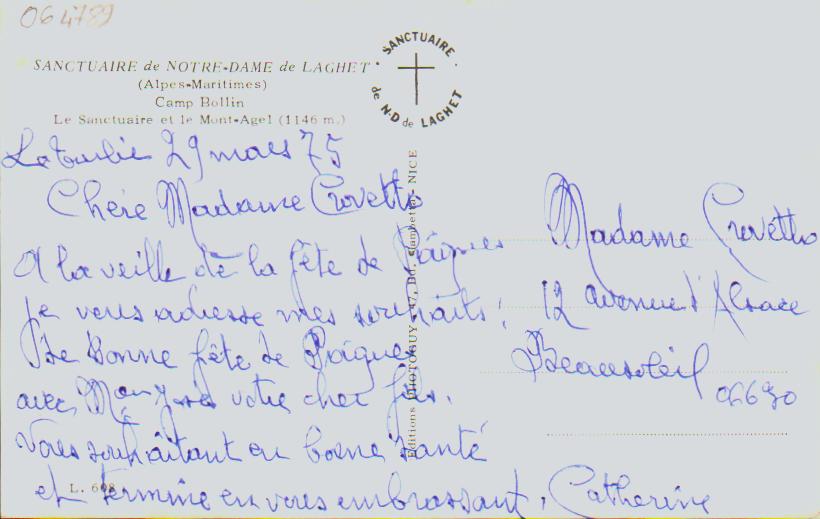 064789
SANCTUAIRE de NOTRE-DAME de LAGHET
(Alpes-Maritimes)
Camp Bollin
Le Sanctuaire et le Mont-Agel (1146 m.)
SANCTUAIRE
de N-D de LAGHET
La Turbie 29 mars 75
Chère Madame Crovetto
A la veille de la fête de Pâques
je vous adresse mes souhaits!
De Bonne fête de Pâques
avec votre cher fils.
Vous souhaitant en bonne santé
et termine en vous embrassant, Catherine
L. 608
Editions PHOTOGUY - 47, Bd. Gambetta - NICE
Madame Crovetto
12 avenue d'Alsace
Beausoleil
06690